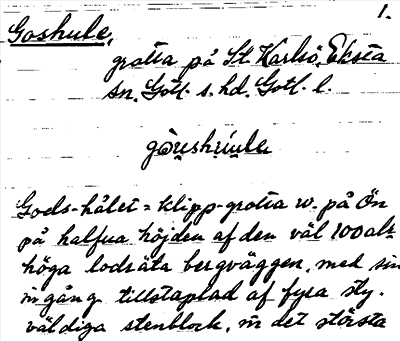 1.
Goshule,
grotta på St. Karlsö, Eksta
sn. Gotl. s. hd. Gotl. l.
Gods-hålet = klipp-grotta w. på Ön
på halfva höjden af den väl 100 aln
höga lodräta bergväggen, med sin
ingång tillstaplad af fyra sty.
väldiga stenblock, in det största